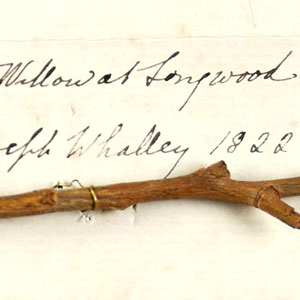 Willow at Longwood
eph Whalley 1822